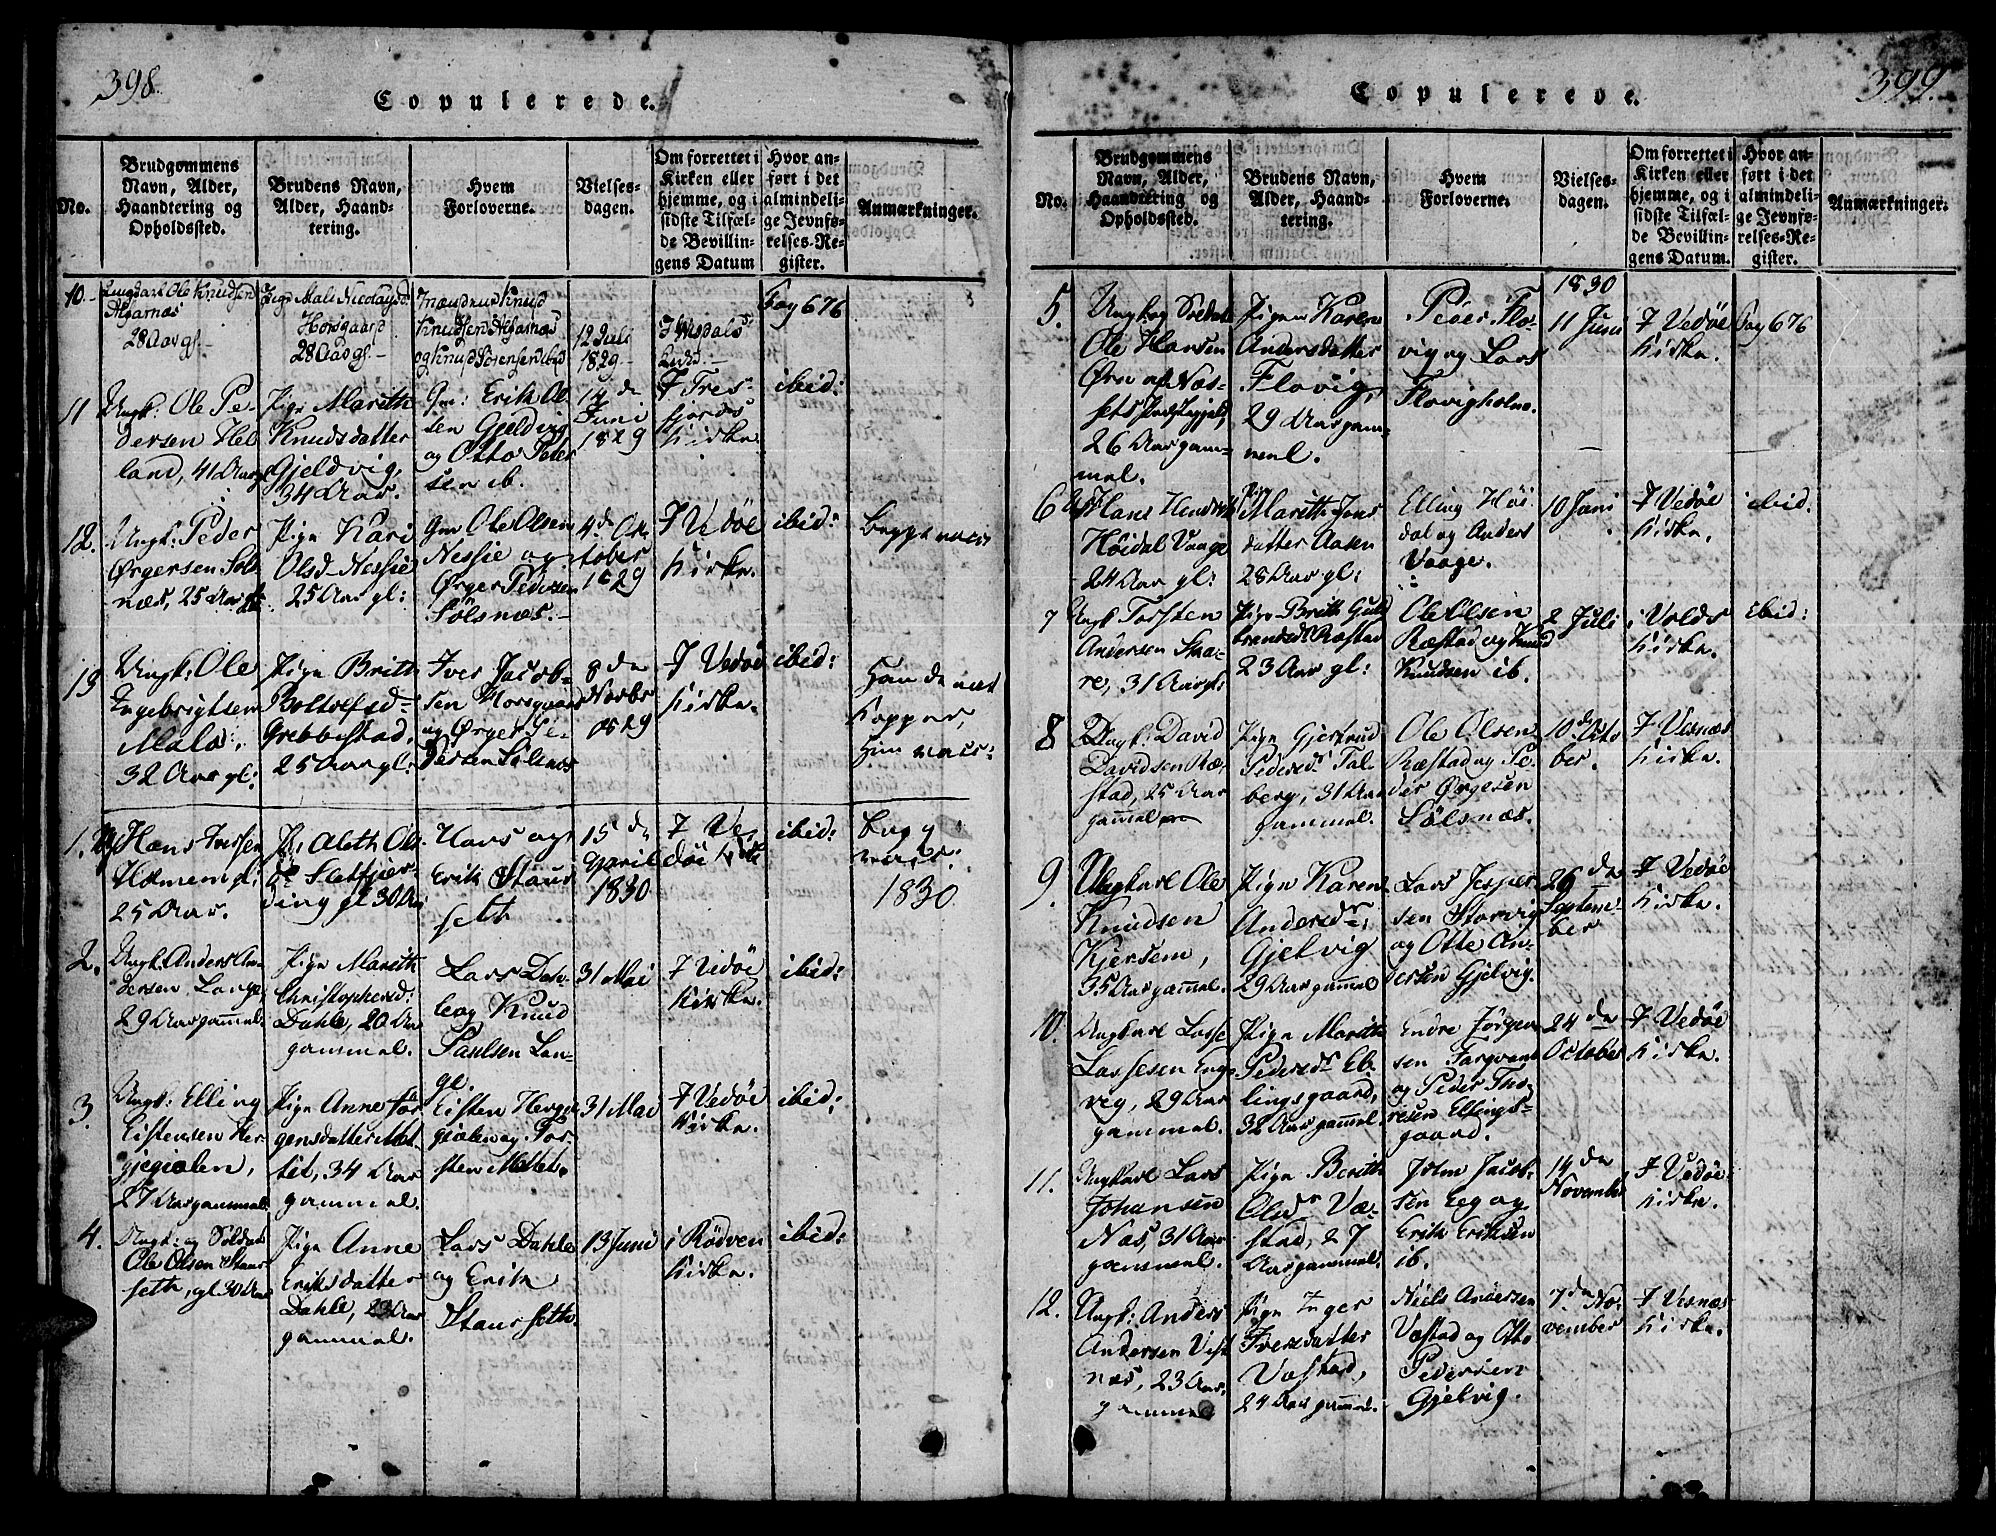 398.
Copulerede.
No.
Brudgommens
Navn, Alder,
Haandtering og
Opholdssted.
Brudens Navn,
Alder, Haand-
tering.
Hvem
Forloverne.
Vielses-
dagen.
Om forrettet i
Kirken eller
hjemme, og i
sidste Tilfæl-
de Bevillin-
gens Datum
Hvor an-
ført i det
almindeli-
ge Jevnfø-
relses-Re-
gister.
Anmærkninger.
10.
Ungkarl Ole Knudsen
28 Aar gl.
Pige Mali Nicolaysd
Horsgaard
28 Aar gl.
Knud
Knudsen
og Knud Sørensen
12 Juli
1829
Pag 676
11
Ungk: Ole Pe-
dersen Hel
land, 41 Aar gl
Pige Marith
Knudsdatter
Gjeldvig,
34 Aar.
Gm: Erik Ol
sen Gjeldvig
og Otto Peter
sen ib.
14 de
Juni
1829
I Tres-
fjords
Kirke
ibid:
12.
Ungk: Peder
Ørgersen Søls
næs, 25 Aar gl
Pige Kari
Olsd Nessie
25 Aar gl:
Gm Ole Olsen
Nessie og
Ørger Pedersen
Sølsnæs.
4de Oc
tober
1829
I Vedøe
Kirke.
ibid:
Begge vacc
13
Ungk: Ole
Ingebrigtsen
Malø,
32 Aar gl:
Pige Brith
Grebbestad,
25 Aar gl:
Iver Jacob-
sen Horsgaard
og Ørger Pe-
dersen Sølsnæs
8 de
Novbr
1829
I Vedøe
Kirke.
ibid:
Han de nat
Kopper,
Hun vacc:
1.
Hans Iversen
Holmem gl:
25 Aar.
P: Aleth Ols
ding gl 30 Aar
Hans og
Erik Staur
seth
15 de
April
1830
I Ve
døe Kirke
ibid:
Begge
vacc:
1830.
2.
Ungk: Anders An
dersen Lange
29 Aar gammel.
Pige Marith
Christophersd:
Dahle, 20 Aar
gammel.
Lars Dah-
le og Knud
Paulsen Lan-
ge.
31 Mai
I Vedøe
Kirke.
ibid:
3.
Ungk: Elling
Eistensen Her
gjegiølen,
27 Aar gammel.
Pige Anne Jør
gensdatter
34 Aar
gammel.
Eisten Herge
giølen og Tor
sten
31 Mai
I Vedøe
Kirke.
ibid:
4.
Ungk: og Soldat
Ole Olsen Staur
seth, gl. 30 Aar
Pige Anne
Eriksdatter
Dahle, 23 Aar
gammel.
Lars Dahle
og Erik
Staurseth.
13 Juni
i Rødven
Kirke.
ibid:
Copulerede.
399.
No.
Brudgommens
Navn, Alder,
Haandtering og
Opholdssted.
Brudens Navn,
Alder, Haand-
tering.
Hvem
Forloverne.
Vielses-
dagen.
Om forrettet i
Kirken eller
hjemme, og i
sidste Tilfæl-
de Bevillin-
gens Datum.
Hvor an-
ført i det
almindeli-
ge Jevnfø-
relses-Re-
gister.
Anmærkninger.
5.
Ungk og Soldat
Ole Hansen
26 Aar gam-
mel.
Pigen Karen
Andersdatter
Flovig,
29 Aar gam-
mel.
Peder Flo-
vig og Lars
Flovigholm.
1830
11 Juni
I Vedøe
Kirke.
Pag 676
6
Hans Hendrik
Høidal Vaage
24 Aar gl:
Marith Jons
datter Aasen
28 Aar gl:
Elling Høi
dal og Anders
Vaage.
10 Juni
I Vedøe
Kirke.
ibid.
7
Ungk Torsten
Andersen Skaa-
re, 31 Aar gl:
Pige Brith Guld
brandsd Ræstad
23 Aar gl:
Ole Olsen
Ræstad og Knud
Knudsen ib.
2 Juli
i Volds
Kirke.
ibid:
8
Ungk: David
Davidsen Ræ-
stad, 25 Aar
gammel
Pige Gjertrud
Pedersd Tal-
berg, 31 Aar
gammel.
Ole Olsen
Ræstad og Pe-
der Ørgesen
Sølsnæs.
10 de Octo
ber.
I Vesnæs
Kirke.
9.
Ungkarl Ole
Knudsen
Kjersem,
35 Aar gammel.
Pige Karen
Andersdr
Gjelvig
29 Aar gammel
Lars Jesper-
sen Storvig
og Otte An-
dersen Gjelvig.
26 de
Septem-
ber
I Vedøe
Kirke.
10.
Ungkarl Lasse
Lassesen Eng-
vig, 29 Aar
gammel.
Pige Marith
Pedersdr El-
lingsgaard,
32 Aar gammel.
Endre Jørgen
sen
og Peder Tho-
resen Ellings-
gaard.
24 de
October
I Vedøe
Kirke.
11.
Ungkarl Lars
Johansen
Næs, 31 Aar
gammel.
Pige Berith
Olsdr Væ-
stad, 27
Aar gammel.
John Jacob-
sen Eeg og
Erik Eriksen
ib.
14 de
November
I Vedøe
Kirke.
12.
Ungk: Anders
Andersen Vest
næs, 23 Aar
gammel
Pige Inger
Iversdatter
Væstad,
24 Aar gammel.
Niels Andersen
Væstad og Otto
Pedersen
Gjelvig.
7 de No-
vember
I Vesnæs
Kirke.